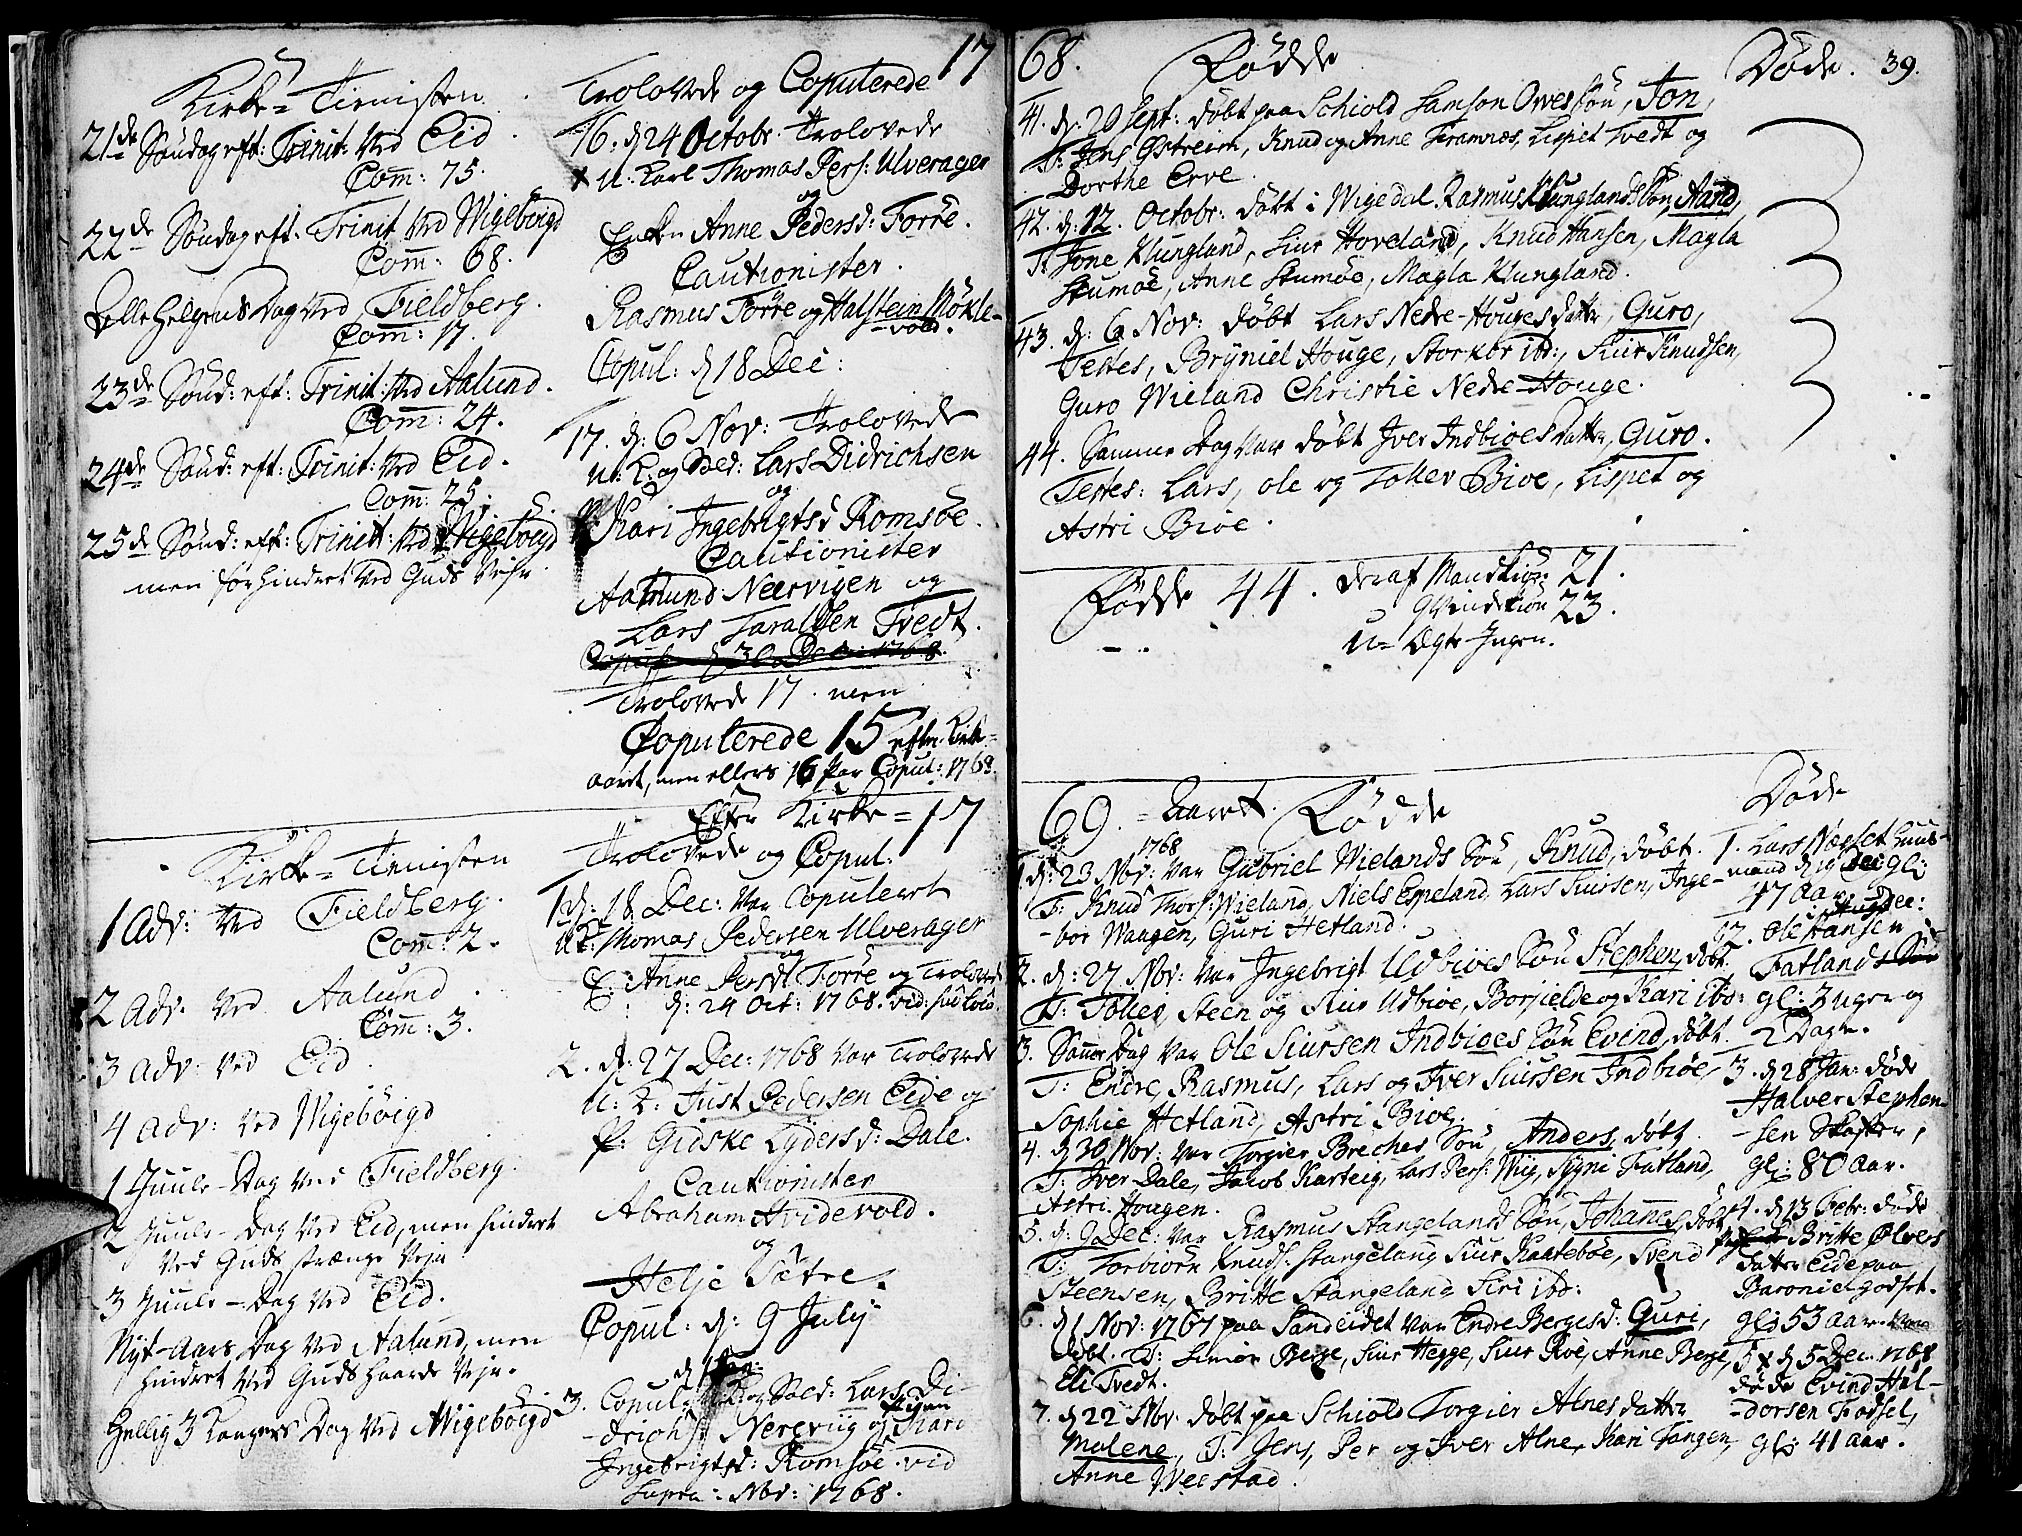 Kirke=Tienisten
21de Søndag eft: Trinit: ved Eid
Com: 75.
22de Søndag eft: Trinit ved Wigebøigd
Com: 68.
Alle Helgens Dag ved Fieldberg.
Com: 17.
23de Sønd: eft: Trinit: ved Aalund.
Com: 24.
24de Sønd: eft: Trinit: ved Eid.
Com: 25.
25de Sønd: eft: Trinit: ved Wigebøigd
men forhindret ved Guds Vejr
Trolovede og Copulerede 17
16. d. 24 Octobr: Trolovede
U: Karl Thomas Pers: Ulverager
og
Enken Anne Pedersd: Førre.
Cautionister.
Rasmus Førre og Halstein Møkle-
vold.
Copul: d. 18 Dec:
17. d: 6 Nov: Trolovede
U: K: og Sold: Lars Didrichsen
og
P: Kari Ingebrigtsd Romsøe.
Cautionister
Aamund Neervigen og
Lars Taraldsen Tvedt.
Copul: d 30 Dec: 1768.
Trolovede 17. men
Copulerede 15 efter Kirke-
aaret, men ellers 16 Par Copul: 1768.
Efter Kirke = 17
Kirke=Tienisten
1 Adv: ved Fieldberg.
Com: 2.
2 Adv. ved Aalund.
Com: 3.
3 Adv: ved Eid.
4 Adv: ved Wigebøigd
1 Juule-Dag ved Fieldberg.
2 Juule-Dag ved Eid, men hindret
ved Guds strænge Vejr
3 Juule-Dag ved Eid.
Nyt-Aars Dag ved Aalund, men
hindret ved Guds haarde Vejr.
Hellig 3 Kongers Dag ved Wigebøigd
Trolovede og Copul:
1. d: 18 Dec: var Copuleret
U: K: Thomas Pedersen Ulverager
og
E: Anne Persd: Førre og Trolovede
d: 24 Oct: 1768. vid:
2. d: 27 Dec: 1768 var Trolovede
U: K: Just Pedersen Eide og
P: Gidske Lydersd: Dale.
Cautionister
Abraham Hvidevold.
og
Helje Sætre.
Copul: d: 9 July
d 1 Jan:
3. Copul: Sold: Lars Di-
drichs: Nerevig og Pigen Kari
Ingebrigtsd: Romsøe. vid
supra: Nov: 1768.
68. Fødde Døde. 39.
41. d. 20 Sept: døbt paa Schiold Samson Orves Søn, Jon,
T: Jens Østreim, Knud og Anne Framnes, Lispet Tvedt og
Dorthe Erve.
42. d: 12. Octobr: døbt i Wigedal Rasmus Klunglands Søn, Aand,
T: Jone Klungland, Siur Hoveland, Knud Hansen, Magla
Skumøe, Anne Skumøe, Magla Klungland.
43. d: 6 Nov: døbt Lars Nedre-Houges datter, Guro,
Testes, Bryniel Houge, Storkor ibd:, Siur Knudsen,
Guro Wieland Christie Nedre-Houge.
44. Samme Dag var døbt Iver Indbioes Datter, Guro.
Testes: Lars, Ole og Tollev Bioe, Lispet og
Astri Bioe.
Fødde 44. deraf Mandkiøn: 21.
Qvindekiøn 23.
U=Ægte Ingen.
69. =Aaret. Fødde
1. d: 23 Nov: 1768 var Gabriel Wielands Søn, Knud, døbt.
T: Knud Thors: Wieland, Niels Espeland, Lars Siursen, Inge-
bor Waagen, Guri Hetland.
2. d: 27 Nov: var Ingebrigt Udbioes Søn Stephen, døbt.
T: Tollev, Steen og Siur Udbioe, Borjielde og Kari ibd:
3. Samme Dag var Ole Siursen Indbioes Søn Evind, døbt.
T: Endre, Rasmus, Lars og Iver Siursen Indbioe,
Sophie Hetland, Astri Bioe.
4. d 30 Nov: var Torgier Breches Søn, Anders, døbt
T: Iver Dale, Jacob Karteig, Lars Pers: Wiig, Sygni Fatland,
Astri Hougen.
5. d: 9 Dec: var Rasmus Stangelands Søn, Johannes, døbt.
T: Torbiørn Knuds: Stangeland, Siur Kaatebøe, Svend
Steensen, Britte Stangeland Siri ibd:
6. d 1 Nov: 1767 paa Sandeidet var Endre Berges d: Guri,
døbt. T: Simon Berge, Siur Hegge, Siur Roe, Anne Berge,
Eli Tvedt.
7. d 22 Nov: døbt paa Schiold Torgier Alnes datter
Malene, T: Jens, Per og Iver Alne, Kari Tangen,
Anne Weestad.
Døde
1. Lars Næsset Huus-
mand d 19 Dec gl:
47 Aar
2. Ole Hansen
Fatlands Søn
gl: 3 Uger og
2 Dage.
3. d 28 Jan: døde
Halver Stephen-
sen
gl: 80 Aar.
4. d 13 Febr: døde
Britte Ølvers
datter Eide paa
Baroniegodset.
gl: 53 Aar.
5 d 5 Dec. 1768
døde Evind Hal-
dorsen Fodsel,
gl: 41 Aar.